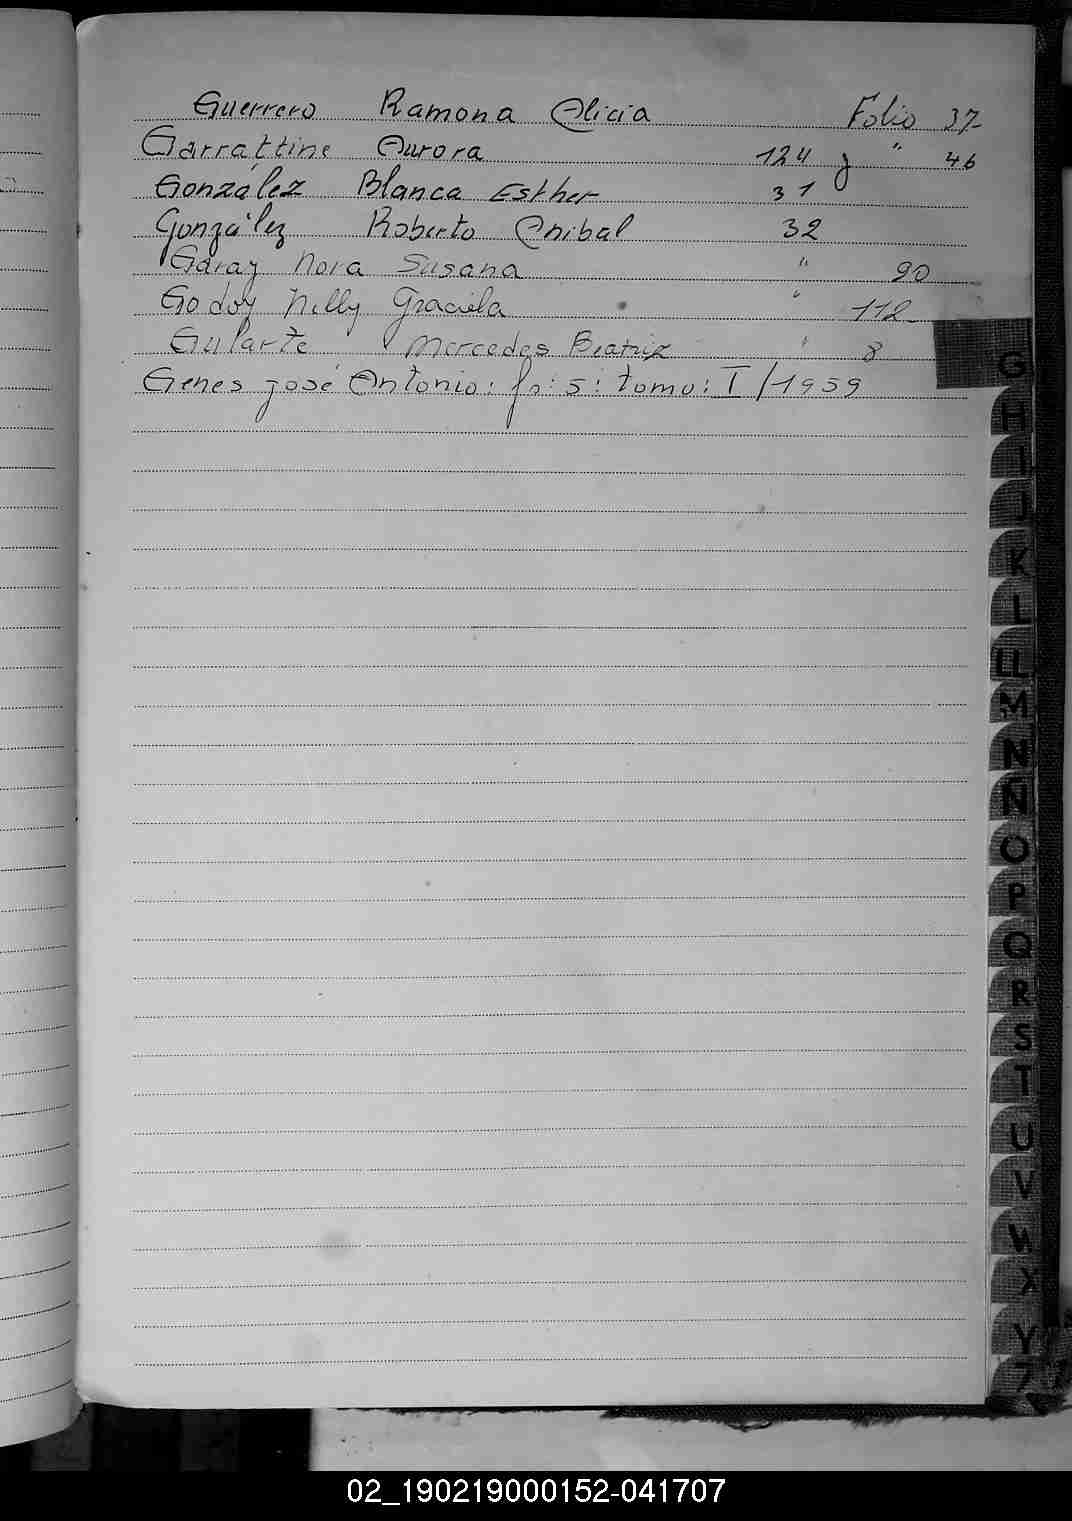 Guerrero Ramona Alicia Folio 37
Garrattini Aurora 124 y " 46
González Blanca Esther 31
González Roberto Anibal 32
Garay Nora Susana " 90
Godoy Nelly Graciela " 112
Gularte Mercedes Beatriz " 8
Genes José Antonio: fo: 5: tomo: I/1959
G
H
I
J
K
L
LL
M
N
Ñ
O
P
Q
R
S
T
U
V
W
X
Y
Z
02_190219000152-041707